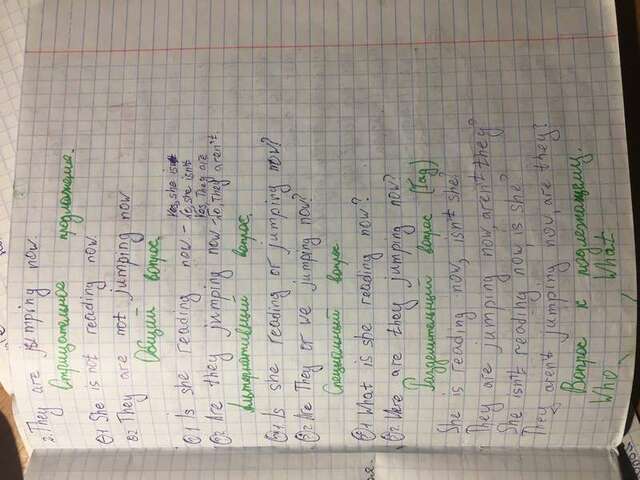 2. They are jumping now.
Отрицательное предложение.
01 She is not reading now.
02 They are not jumping now
Общий вопрос.
01 Is she reading now - Yes, she is
No, she isn't
Yes, They are
02 Are they jumping now - No, They aren't
Альтернативный вопрос.
01 Is she reading or jumping now?
02 Are They or we jumping now?
Специальный вопрос
01 What is she reading now?
02 Were are they jumping now?
Разделительный вопрос (Tag)
She is reading now, isn't she?
They are jumping now, aren't they?
She isn't reading now is she?
They aren't jumping now, are they?
Вопрос к подлежащему.
Who What